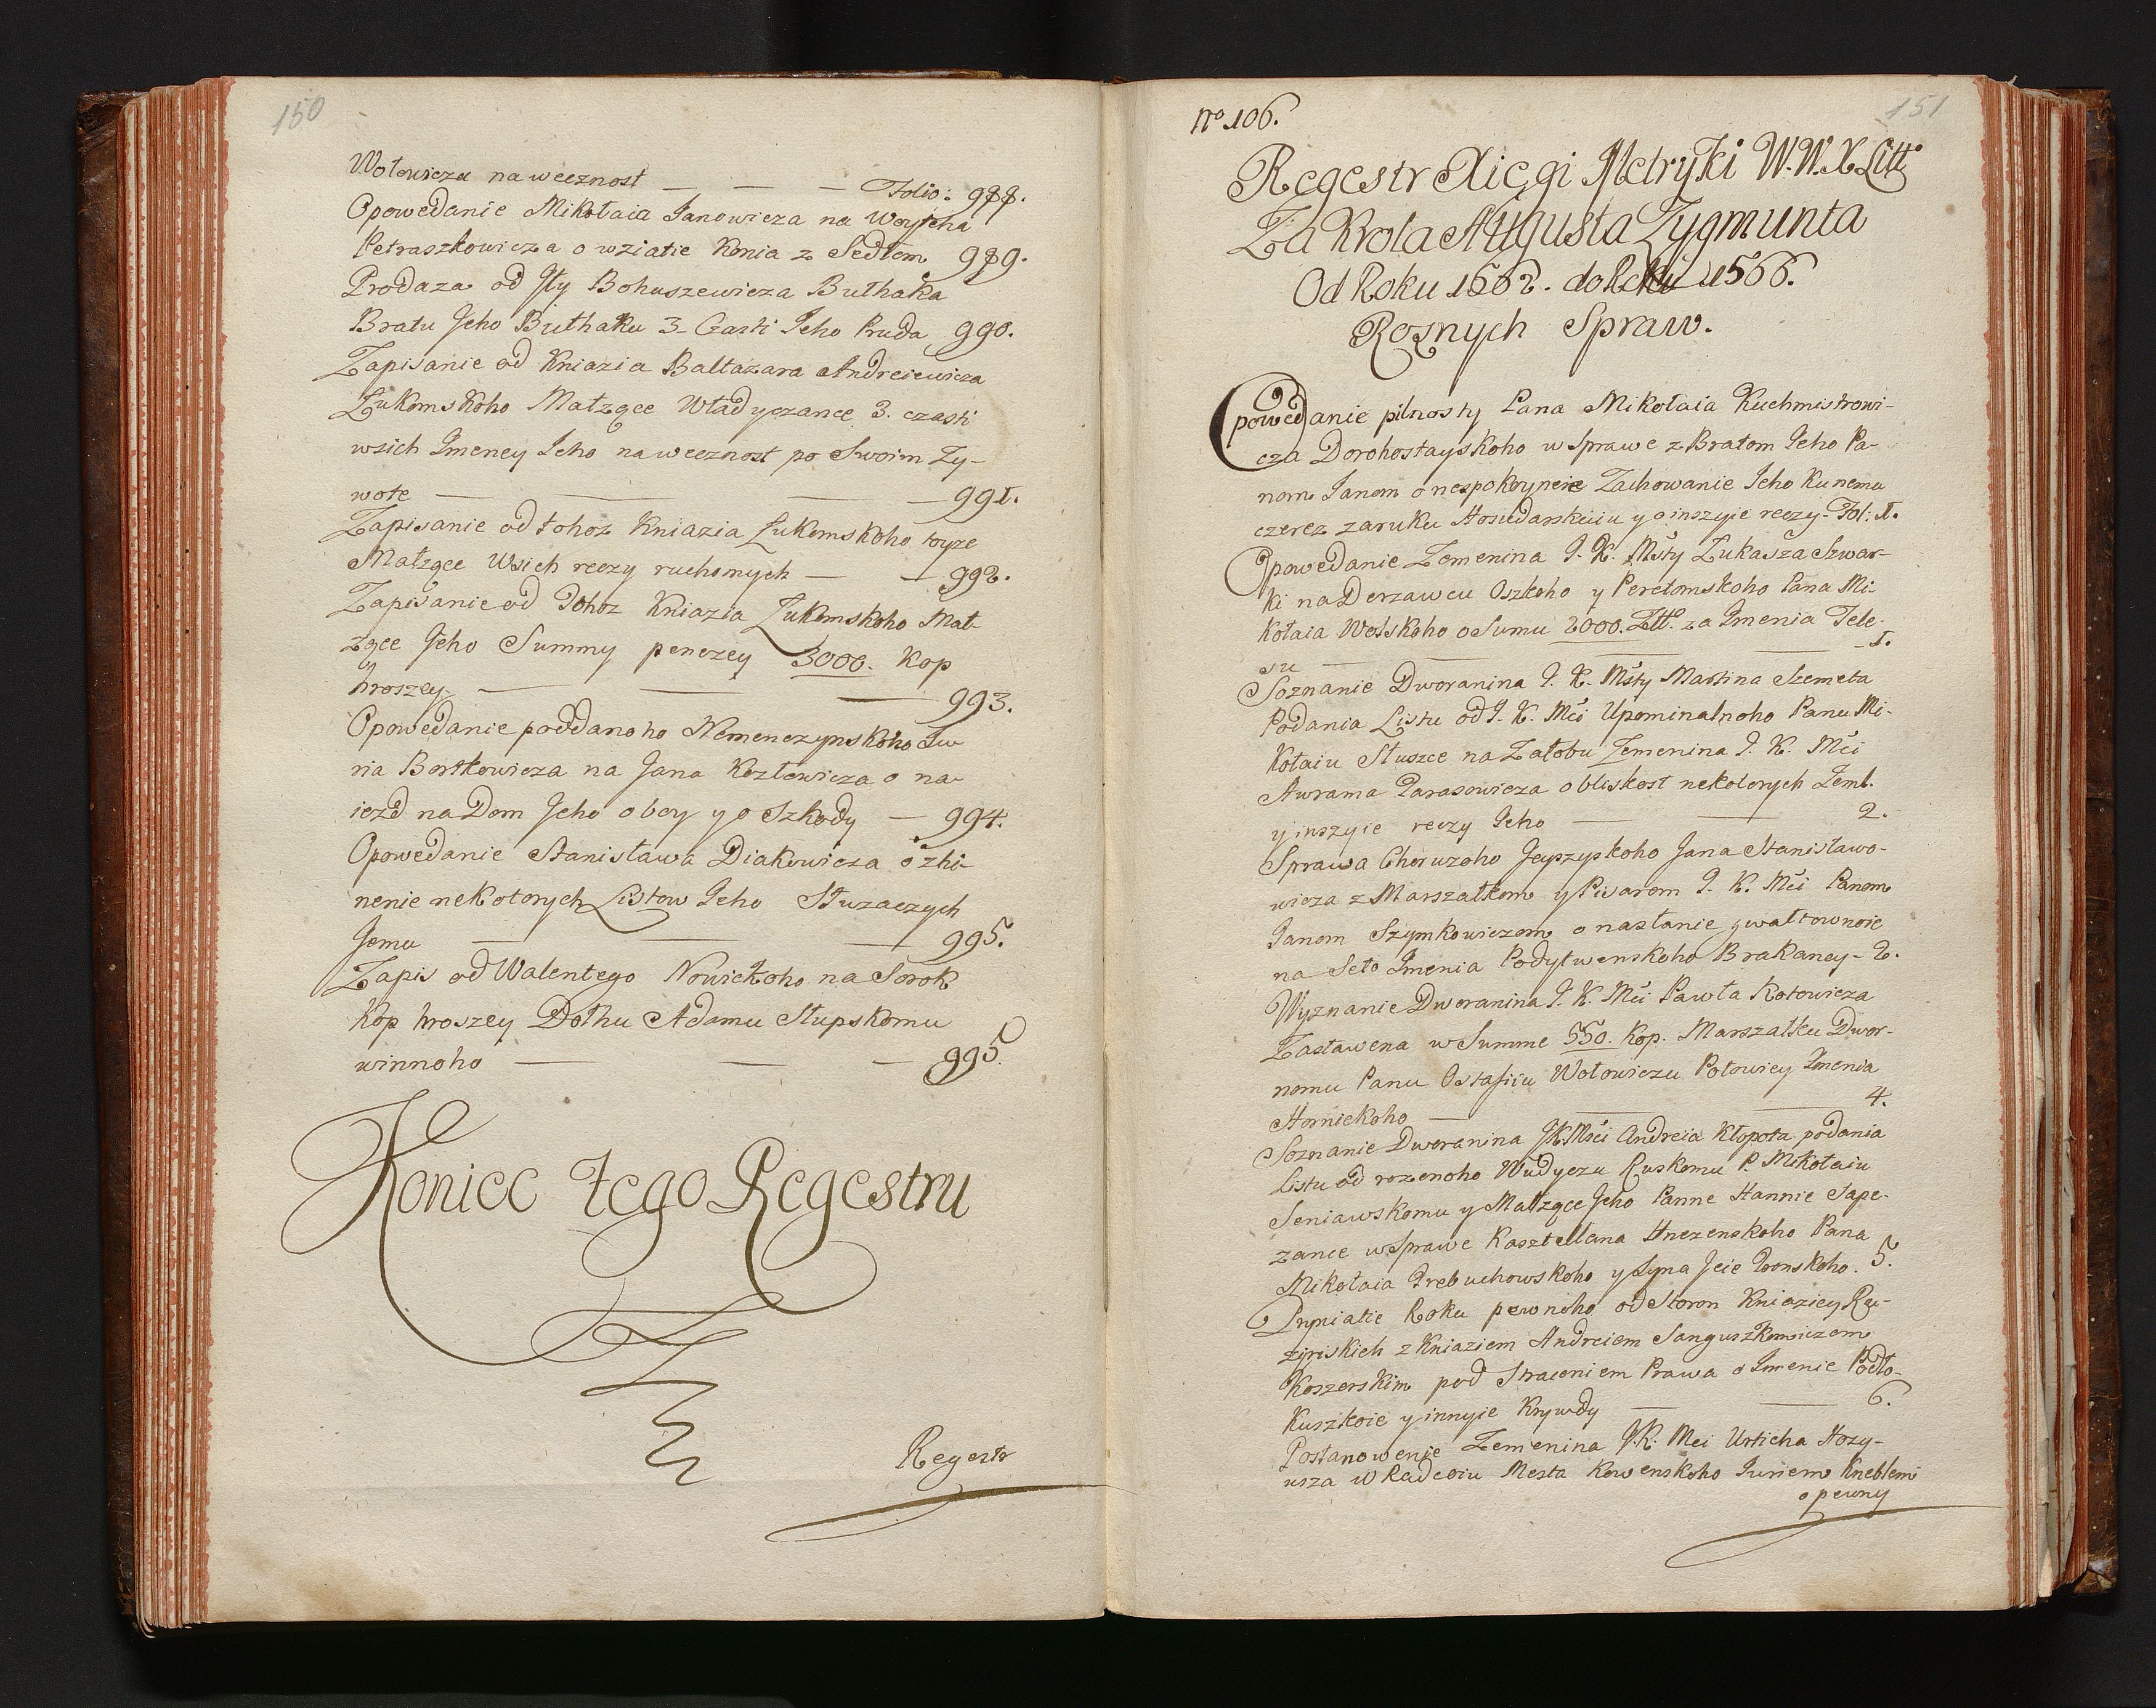 150
Wołowiczu na wecznost — — — Folio: 988.
Opowedanie Mikołaia Janowicza na Woytcha
Petraszkowicza o wziatie Konia z Sedłem 989.
Prodaza od Ily Bohuszewicza Buthaka
Bratu Jeho Buthaku 3. Czasti Jeho Pruda 990.
Zapisanie od Kniazia Baltazara Andreiewicza
Łukomskoho Małzące Władyczance 3. czasti
wsich Imeney Jeho na wecznost po Swoim Zy-
wote — — — — 991.
Zapisanie od tohoz Kniazia Łukomskoho toyze
Małzące Wsich reczy ruchomych — — 992.
Zapisanie od Tohoz Kniazia Łukomskoho Mał-
zące Jeho Summy penezey 3000. Kop
hroszey — — — 993.
Opowedanie poddanoho Nemenczynskoho Lu-
ria Bortkowicza na Jana Kozłowicza o na-
iezd na Dom Jeho o boy y o Szkody — 994.
Opowedanie Stanisława Diakowicza o zhi-
nenie nekotorych Listow Jeho Słuzaczych
Jemu — — — 995.
Zapis od Walentego Nowickoho na Sorok
Kop hroszey Dołhu Adamu Słupskomu
winnoho — — — 995.
Koniec tego Regestru
Regestr
151
No 106.
Regestr Xięgi Metryki W. W. X. Litt°
Za Krola Augusta Zygmunta
Od Roku 1562. do Roku 1566.
Roznych Spraw.
Opowedanie pilnosty Pana Mikołaia Kuchmistrowi-
cza Dorohostayskoho w Sprawe z Bratom Jeho Pa-
nom Janom o nespokoynoie Zachowanie Jeho Ku nemu
czerez zaruku Hosudarskuiu y o inszyie reczy - Fol: 1.
Opowedanie Zemenina J. K. Msty Łukasza Szwar-
ki na Derzawcu Oszkoho y Perełomskoho Pana Mi-
kołaia Wolskoho o Sumu 2000. Złł. za Imenia Tele-
su — — — — 1.
Soznanie Dworanina J. K. Msty Martina Szemeta
Podania Listu od J. K. Mći Upominalnoho Panu Mi-
kołaiu Słuszce na Załobu Zemenina J. K. Mći
Awrama Parasowicza o bliskost nekotorych Zeml.
y inszyie reczy Jeho — — 2.
Sprawa Choruzoho Jeyszyskoho Jana Stanisławo-
wicza z Marszałkom y Pisarom J. K. Mći Panom
Janom Szymkowiczom o nasłanie gwałtownoie
na Seło Imenia Podytwenskoho Brakaney - 2.
Wyznanie Dworanina J. K. Mći Pawła Kotowicza
Zastawena w Summe 550. Kop. Marszałku Dwor-
nomu Panu Ostafiiu Wołowiczu Połowicy Imenia
Hornickoho — — — 4.
Soznanie Dworanina J K. Mści Andreia Kłopota podania
Listu od rozenoho Wudyczu Ruskomu P. Mikołaiu
Seniawskomu y Małzące Jeho Panne Hannie Sape-
zance w Sprawe Kasztellana Hnezenskoho Pana
Mikołaia Trebuchowskoho y Syna Jeie Woonskoho. 5.
Pryniatie Roku pewnoho od Storon Kniaziey Ru-
zynskich z Kniaziem Andreiem Sanguszkowiczom
Koszerskim pod Straceniem Prawa o Imenie Podło-
kuszkoie y innyie Krywdy — — 6.
Postanowenie Zemenina J. K. Mci Urticha Hozy-
usza w Radcoiu Mesta Kowenskoho Juriem Kneblem
o pewny